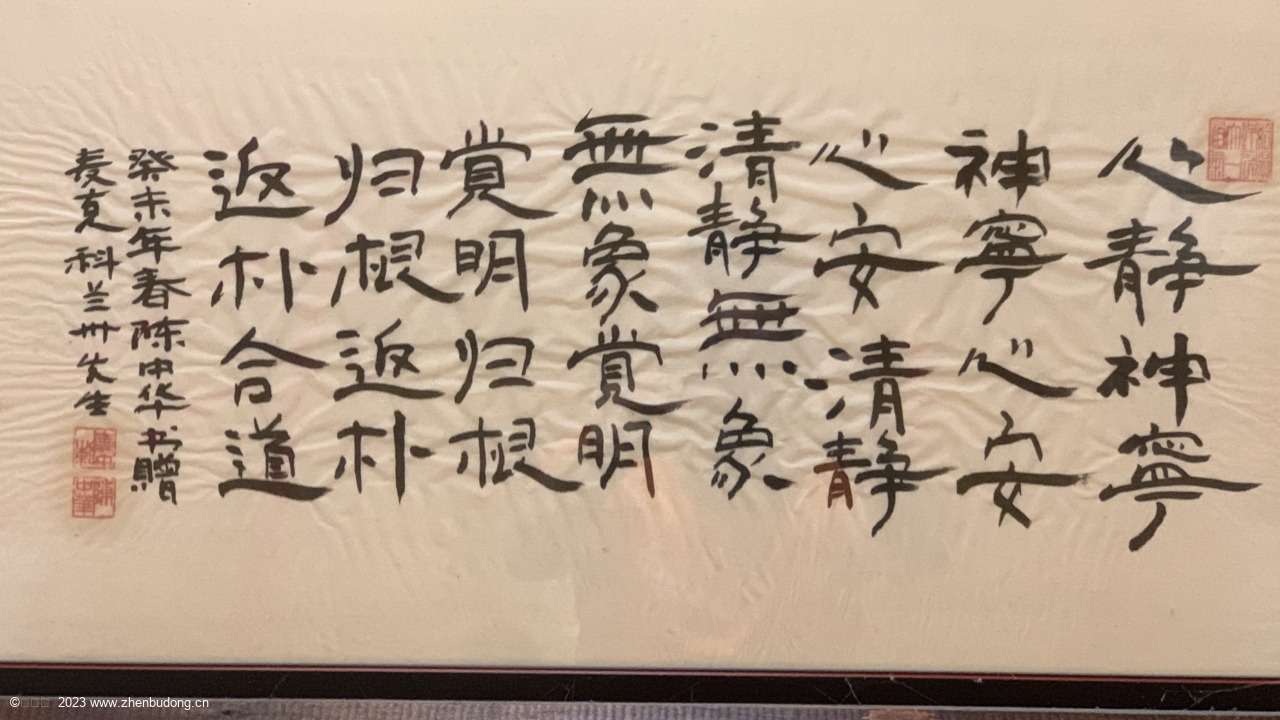 心静神寧
神寧心安
心安清静
清静無象
無象覚明
覚明归根
归根返朴
返朴合道
癸未年春陈中华书贈
麦克 科兰卅先生
© 2023 www.zhenbudong.cn